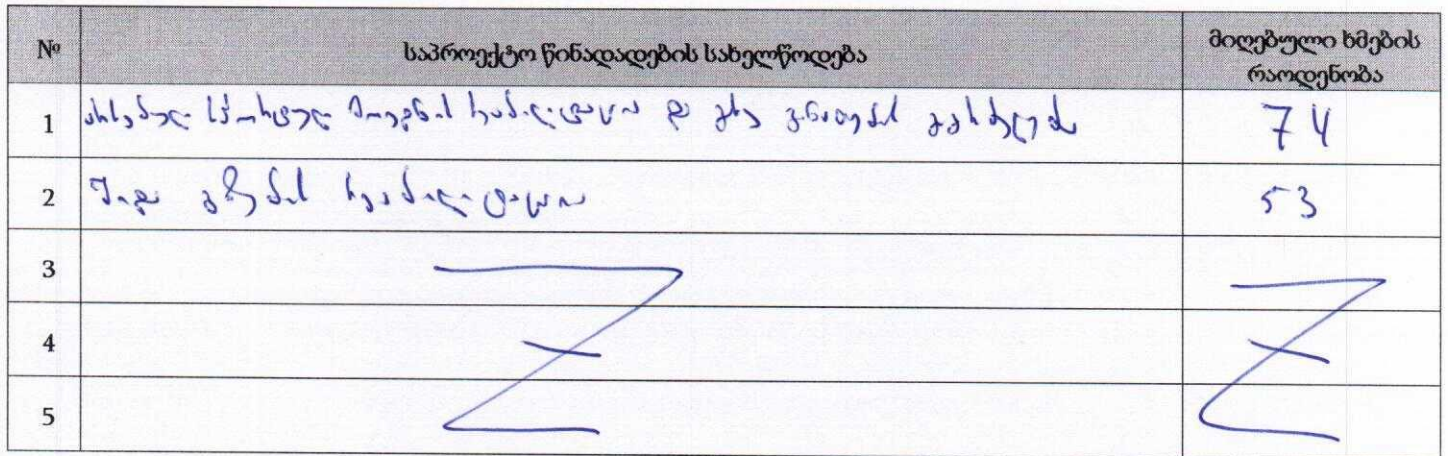 № საპროექტო წინადადების სახელწოდება მიღებული ხმების რაოდენობა
1 არსებული სპორტული მოედნის რეაბილიტაცია და გარე განათების 74
2 შიდა გზების რეაბილიტაცია 53
3
4
5